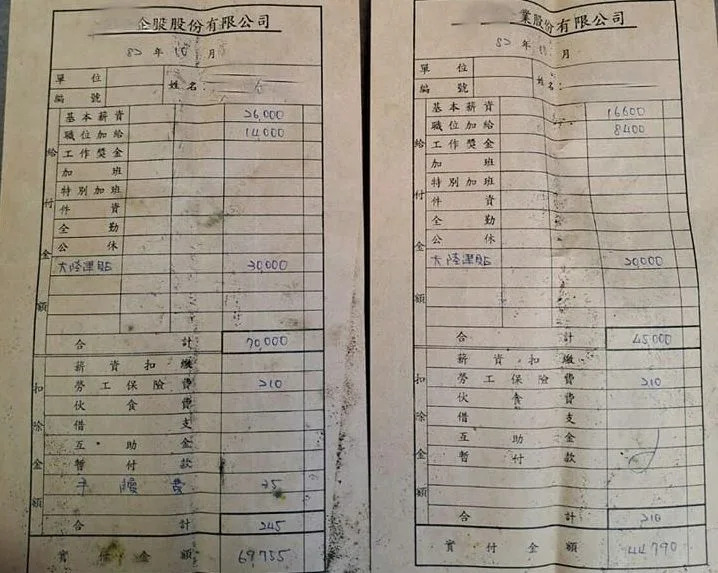 企股股份有限公司
82 年 10 月
單位 姓名:
編號
給付金額
基本薪資 26,000
職位加給 14,000
工作獎金
加班
特別加班
件資
全勤
公休
大陸津貼 30,000
合計 70,000
扣除金額
薪資扣繳
勞工保險費 210
伙食費
借支
互助金
暫付款
手續費 35
合計 245
實付金額 69,755
業股份有限公司
82 年 10 月
單位 姓名:
編號
給付金額
基本薪資 16600
職位加給 8400
工作獎金
加班
特別加班
件資
全勤
公休
大陸津貼 20,000
合計 45,000
扣除金額
薪資扣繳
勞工保險費 210
伙食費
借支
互助金
暫付款
合計 210
實付金額 44,790